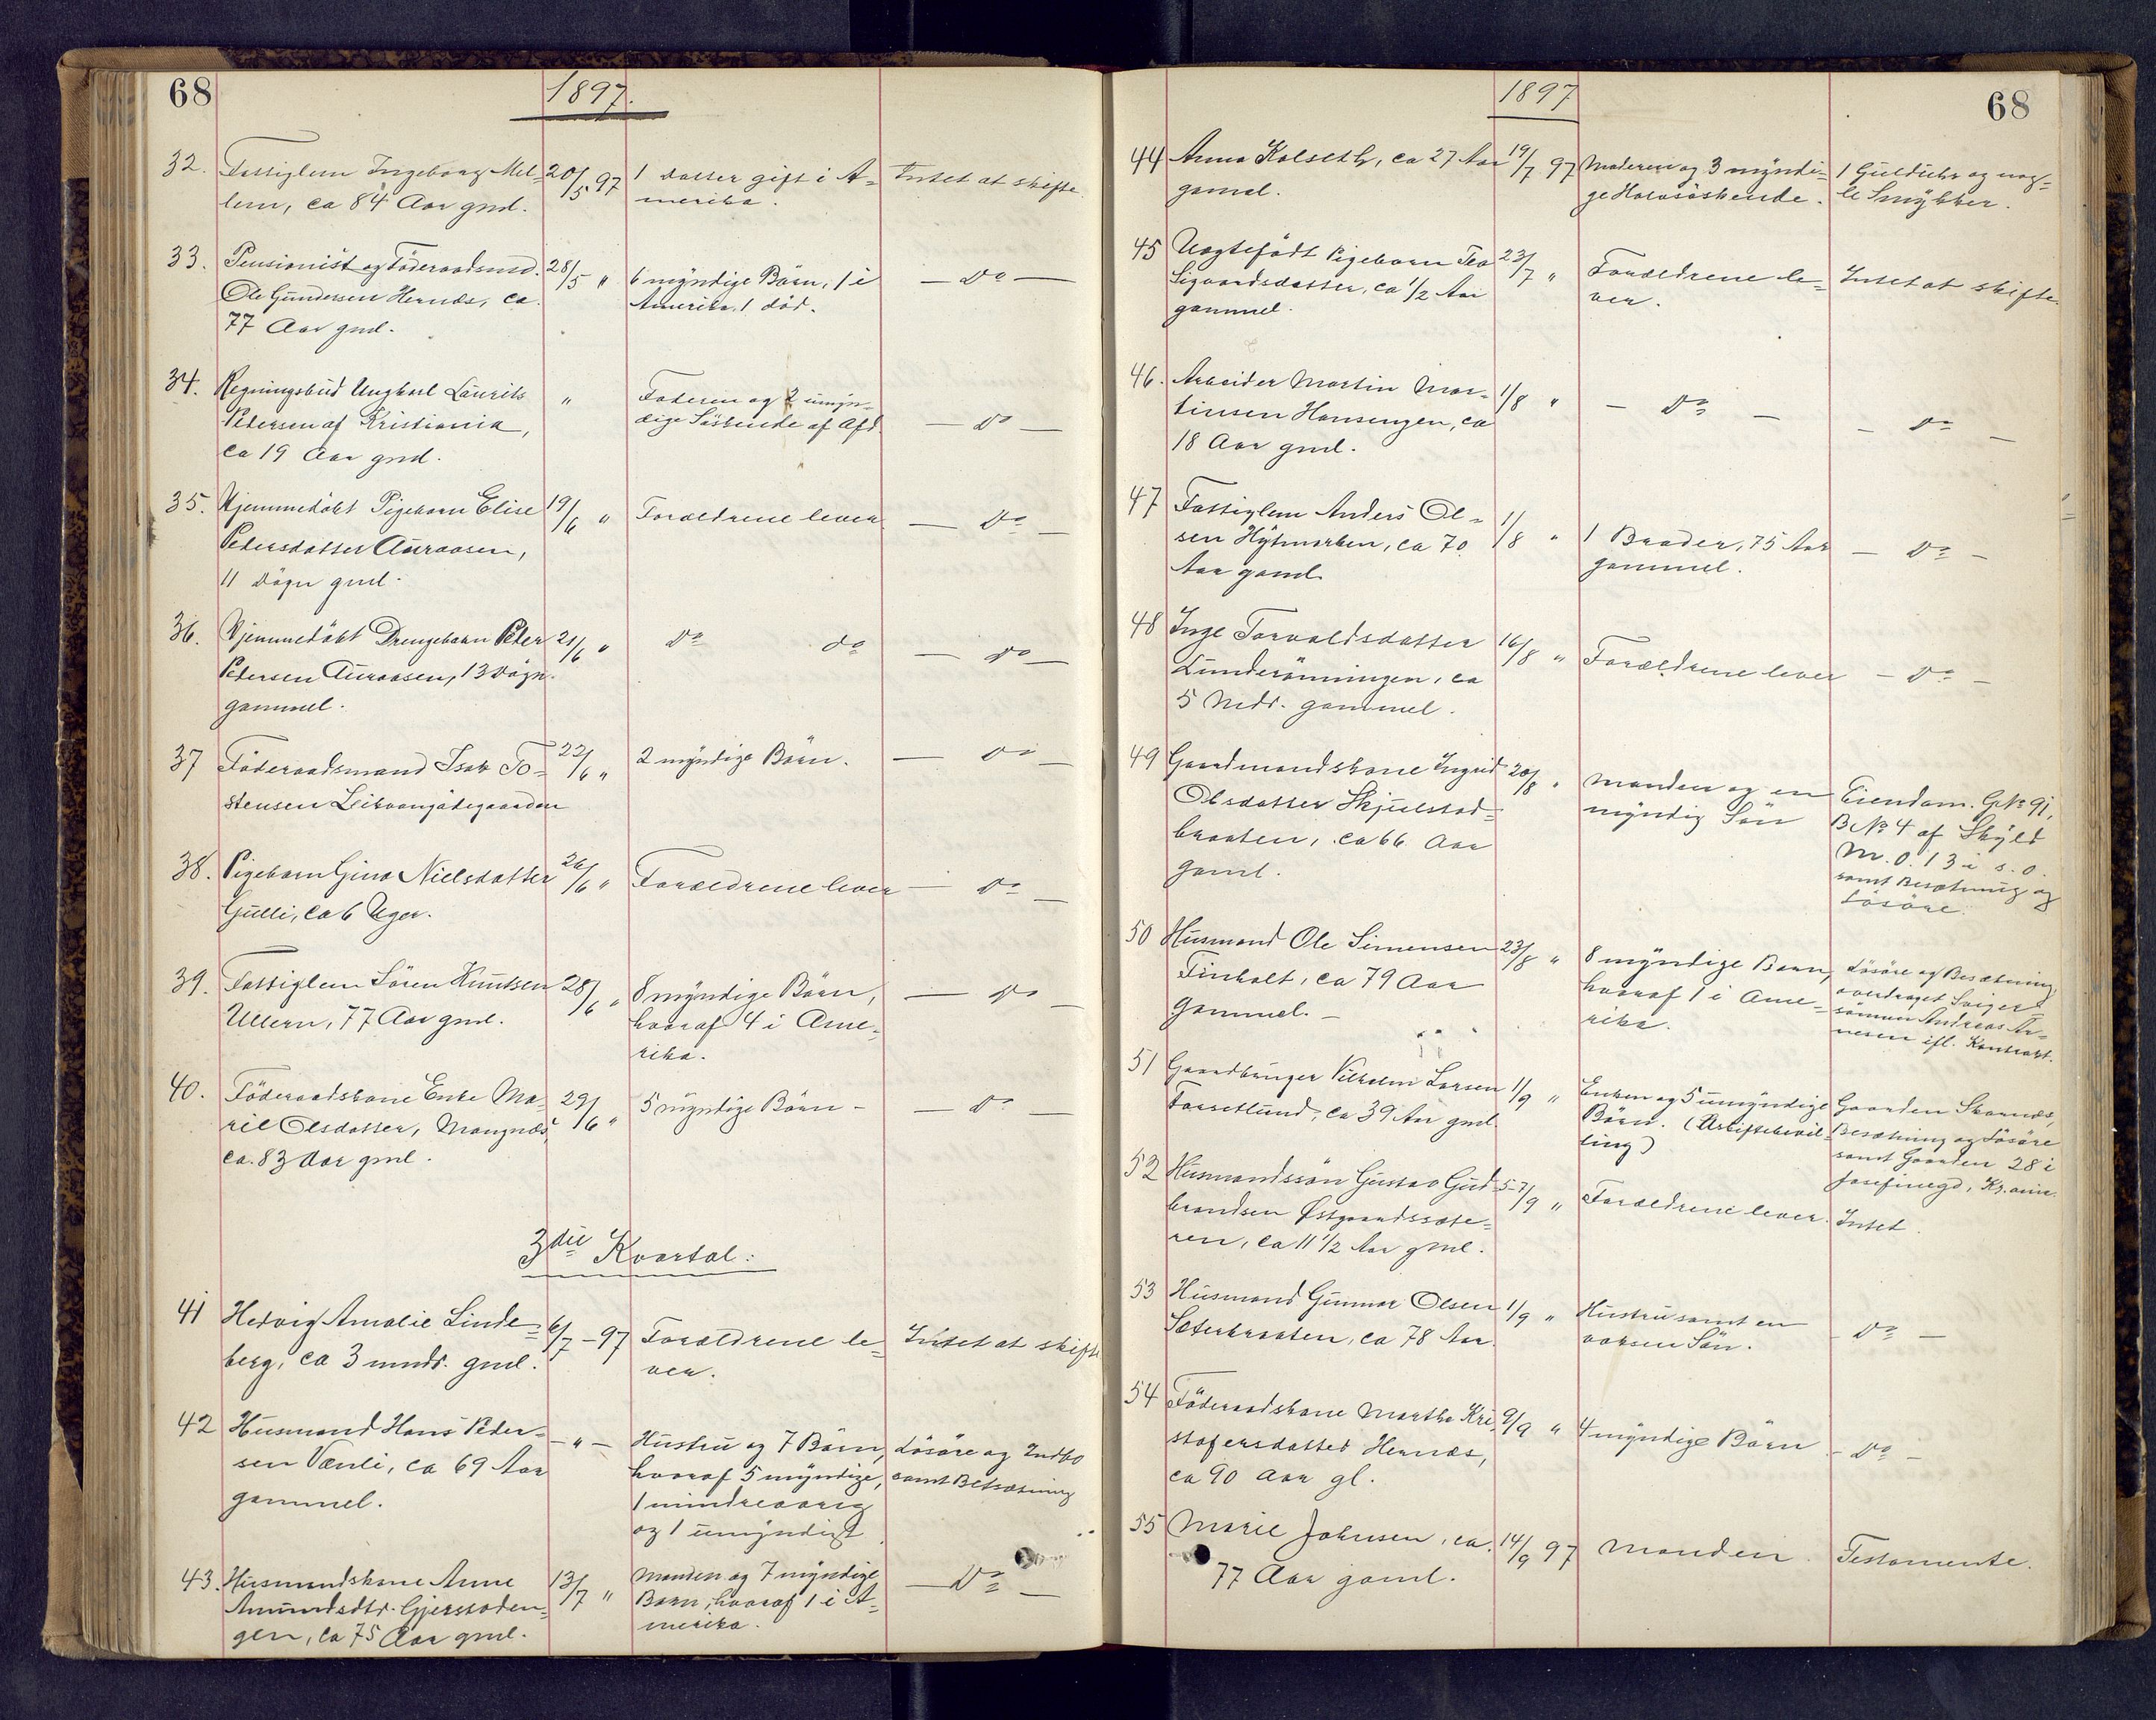 68
1897.
32. Fattiglem Ingeborg Mel- 20/5 97 1 datter gift i A- Intet at skifte
lem, ca 84 Aar gml. merika.
33. Pensionist og Föderaadsmd. 28/5 " 6 myndige Börn, 1 i — Do —
Ole Gundersen Hernæs, ca. Amerika, 1 död.
77 Aar gml.
34. Regningsbud Ungkarl Laurits " Faderen og 2 umyn-
Pedersen af Kristiania, dige Söskende af Afd. — Do —
ca 19 Aar gml.
35. Hjemmedöbt Pigebarn Elise 19/6 " Forældrene lever — Do —
Pedersdatter Auraasen,
11 Dögn gml.
36. Hjemmedöbt Drengebarn Peder 21/6 " Do do — Do —
Pedersen Auraasen, 13 Dögn
gammel.
37 Föderaadsmand Isak To- 22/6 " 2 myndige Börn. — Do —
stensen
38. Pigebarn Gina Nielsdatter 26/6 " Forældrene lever — Do —
Gulli, ca 6 Uger.
39. Fattiglem Sören Knutsen 28/6 " 8 myndige Börn, — Do —
Ullern, 77 Aar gml. hvoraf 4 i Ame-
rika.
40. Föderaadskone Enke Ma- 29/6 " 5 myndige Börn - — Do —
ril Olsdatter, Mangnæs,
ca. 83 Aar gml.
3die Kvartal:
41 Hedvig Amalie Linde- 6/7 - 97 Forældrene le- Intet at skifte
berg, ca 3 mndr. gml. ver.
42 Husmand Hans Peder- — " — Hustru og 7 Börn, Lösöre og Indbo
sen Vænli, ca 69 Aar hvoraf 5 myndige, samt Besætning
gammel. 1 mindreaarig
og 1 umyndigt
43. Husmandskone Anne 13/7 " Manden og 7 myndige — Do —
Amundsdtr. Gjersröden- Barn, hvoraf 1 i A-
gen, ca 75 Aar gml. merika.
1897
68
44 Anna Kolseth, ca 27 Aar 19/7 97 Moderen og 3 myndi- 1 Guldur og nog-
gamel. ge Halvsöskende. le Smykker.
45 Uægtefödt Pigebarn Tea 23/7 " Forældrene le- Intet at skifte.
Sigvardsdatter, ca 1/2 Aar ver.
gammel.
46. Arbeider Martin Mar- 1/8 " — Do — — Do —
tinsen Hansengen, ca
18 Aar gml.
47 Fattiglem Anders Ol- 1/8 " 1 Broder, 75 Aar — Do —
sen Hytmarken, ca 70 gammel.
Aar gaml.
48 Inge Torvaldsdatter 16/8 " Forældrene lever — Do —
Lunderönningen, ca
5 Mdr. gammel.
49 Gaardmandskone Ingrid 20/8 " Manden og en Eiendom. GNo 91,
Olsdatter Skjulstad- myndig Sön BNo 4 af Skyld
braaten, ca 66 Aar M. 0. 13 i s. o.
gaml. samt Besætning og
Lösöre.
50 Husmand Ole Simensen 23/8 " 8 myndige Barn, Lösöre og Besætning,
Finholt, ca 79 Aar hvoraf 1 i Ame- overdraget Sviger-
gammel. — rika. sönnen Andreas Ar-
nesen ifl. Kontrakt.
51 Gaardbruger Vilhelm Larsen 1/9 " Enken og 5 umyndige Gaarden Skarnæs,
Forsetlund, ca 39 Aar gml. Börn. (Uskiftebevil- Besætning og Lösöre
ling) samt Gaarden 28 i
Josefinegd, Kr.ania.
52 Husmandssön Gustav Gud- 5-7/9 " Forældrene lever. Intet.
brandsen Østgaardssæte-
ren, ca 11 1/2 Aar gml.
53 Husmand Gunnar Olsen 1/9 " Hustru samt en — Do —
Sæterbraaten, ca 78 Aar. voksen Sön.
54 Föderaadskone Martha Kri- 9/9 " 4 myndige Börn — Do —
stofersdatter Hernæs,
ca 90 Aar gl.
55 Marie Johnsen, ca. 14/9 97 Manden. Testamente.
77 Aar gaml.